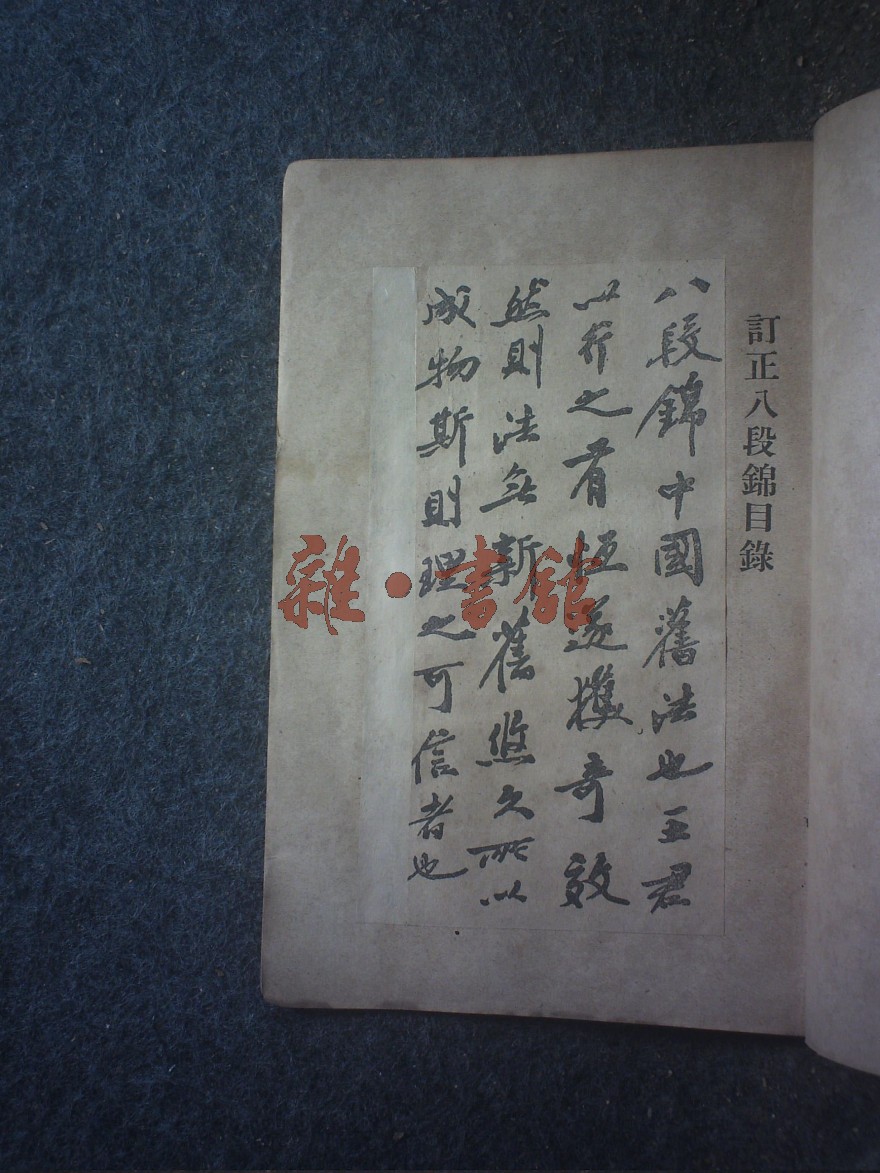 訂正八段錦目錄
八段錦中國舊法也王君
以行之有恆遂獲奇效
然則法無新舊悠久所以
成物斯則理之可信者也
雜·書館